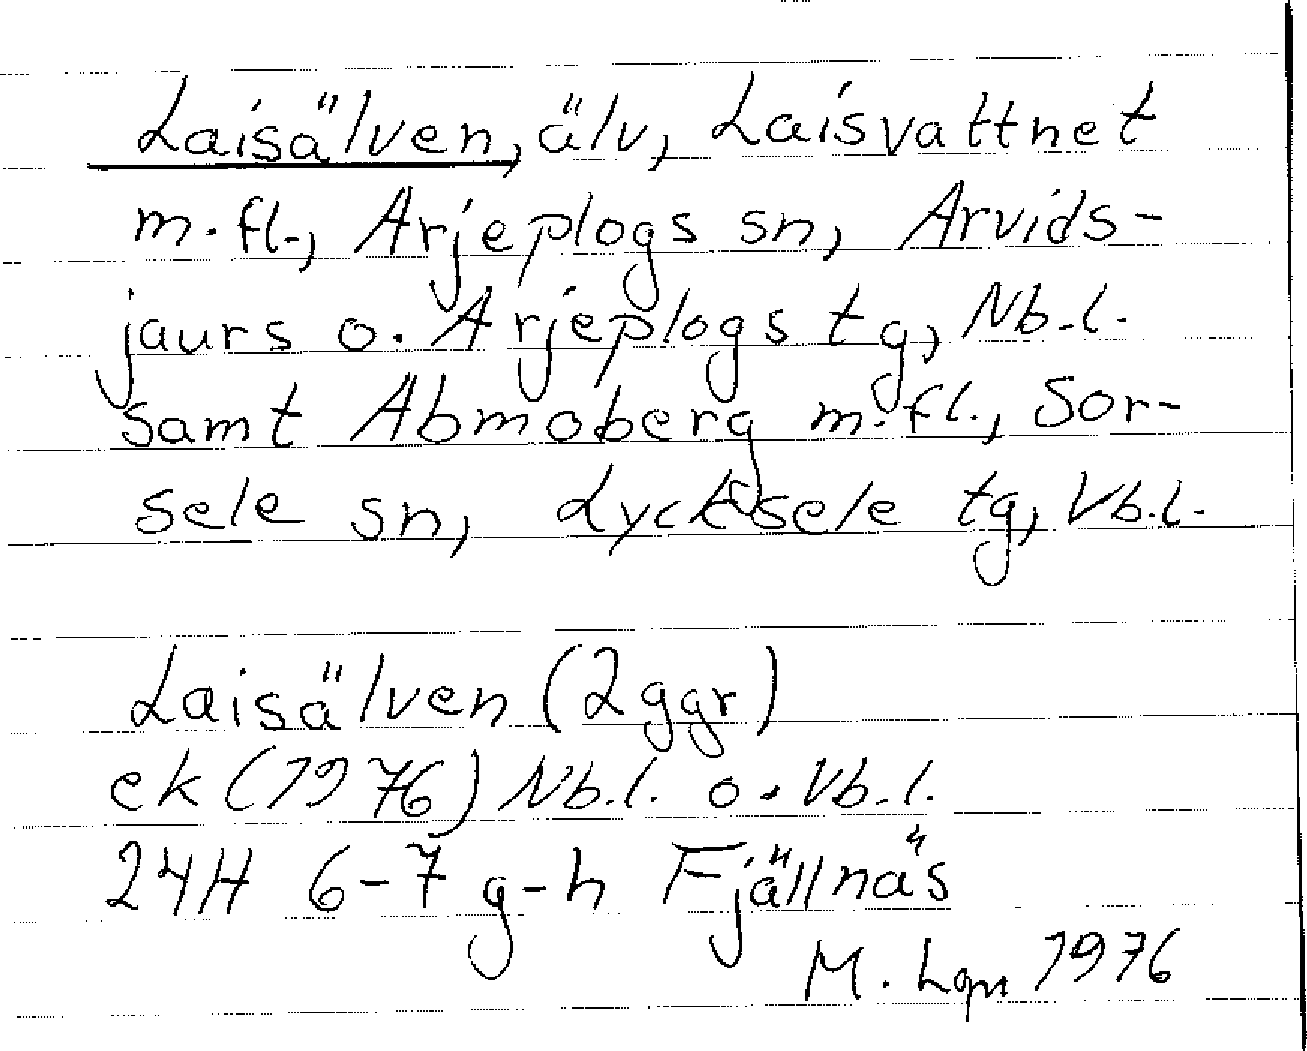 Laisälven, älv, Laisvattnet
m.fl., Arjeplogs sn, Arvids-
jaurs o. Arjeplogs tg, Nb.l.
samt Abmoberg m.fl., Sor-
sele sn, Lycksele tg, Vb.l.
Laisälven (2ggr)
ek (1976) Nb.l. o. Vb.l.
24H 6-7 g-h Fjällnäs
M. Lgn 1976